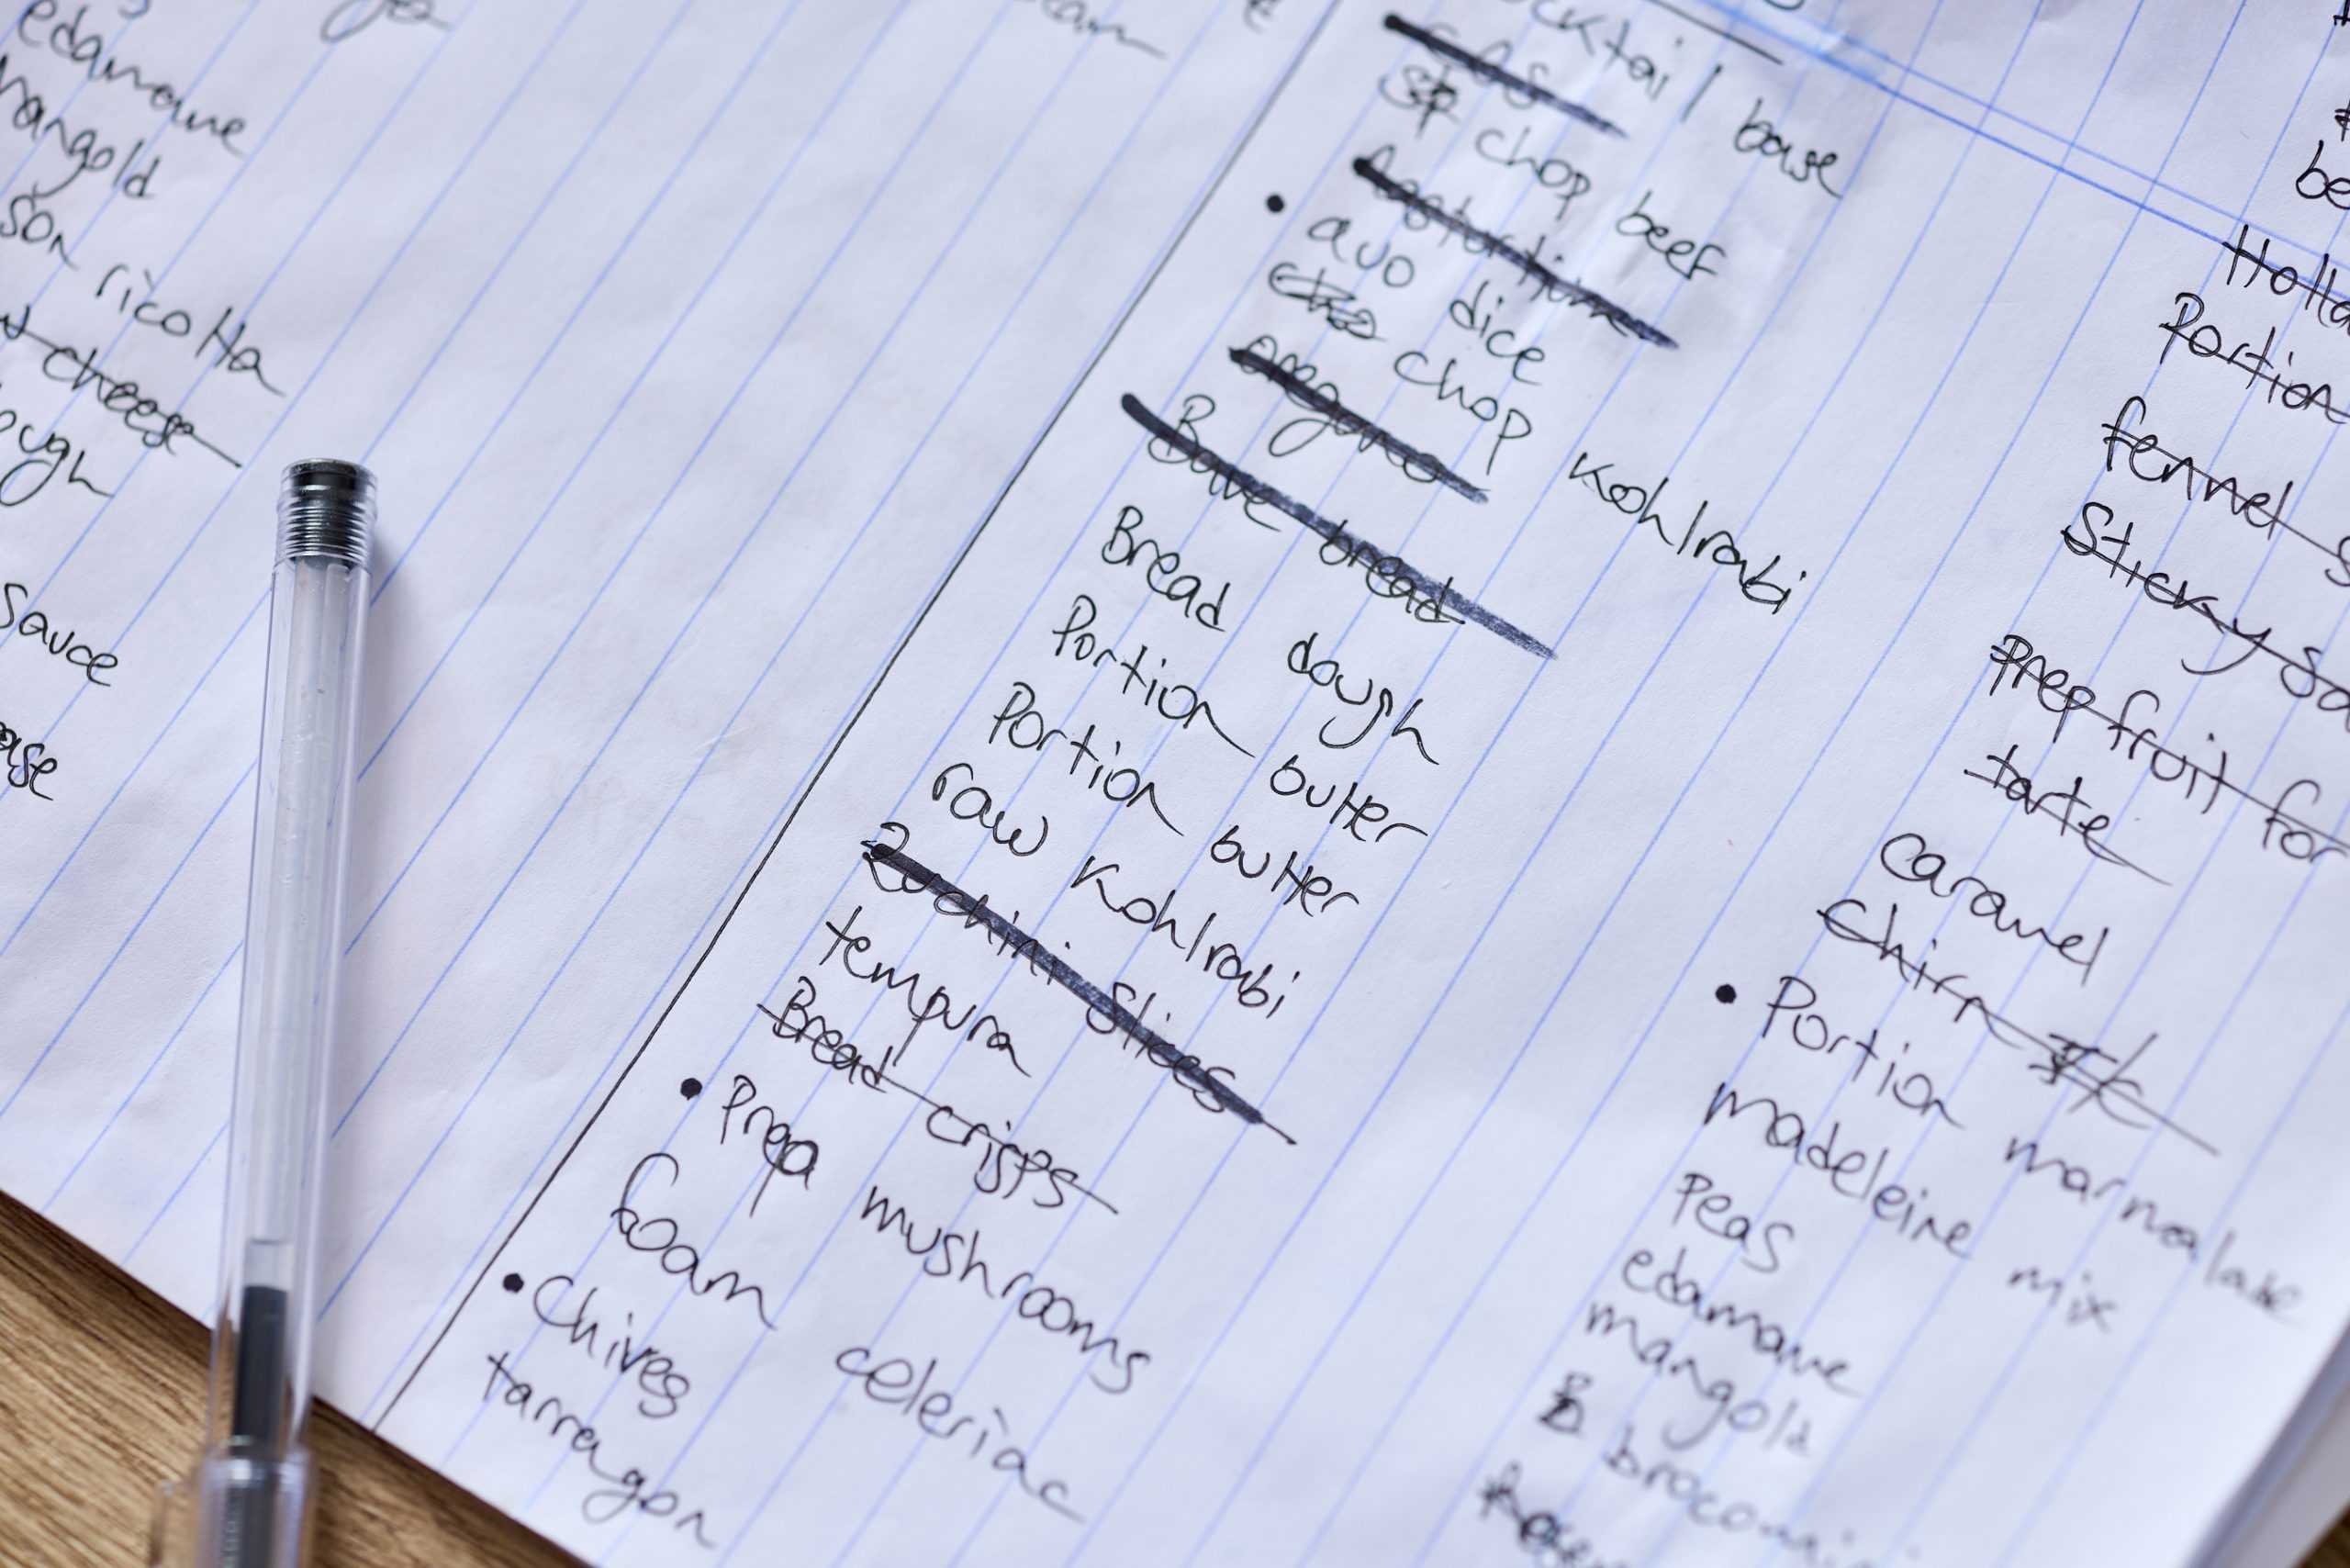 edamame
mangold
ricotta
cheese
sauce
cocktail base
cos
chop beef
nasturtium
avo dice
chop kohlrabi
oregano
Bake bread
Bread dough
Portion butter
Portion butter
raw kohlrabi
Zuchini slices
tempura
Bread crisps
Prep mushrooms
foam celeriac
Chives
tarragon
Portion
fennel
Sticky
prep fruit for
tarte
caramel
Portion marmalade
madeleine mix
Peas
edamame
mangold